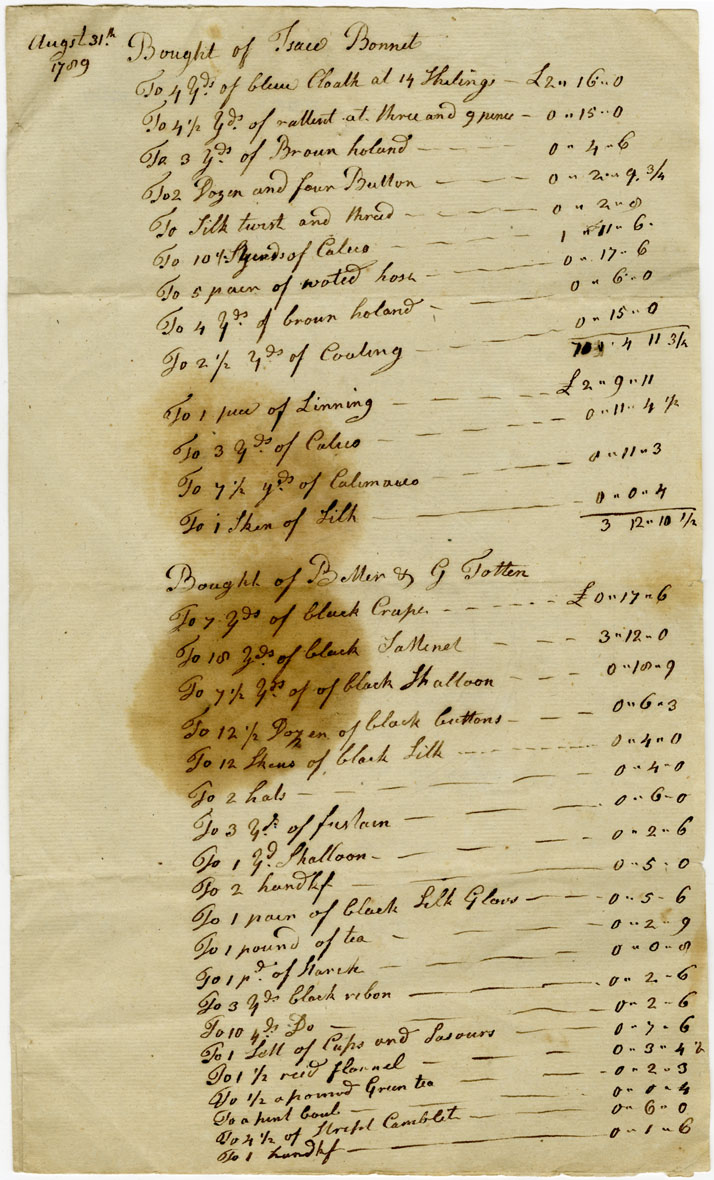 Augst 31.th
1789
Bought of Isaac Bonnet
To 4 Yds of blew Cloath at 14 Shilings — £2 " 16 " 0
To 4 1/2 Yds. of rattent at three and 9 pence — 0 " 15 " 0
To 3 Yds of Broun holand — 0 " 4 " 6
To 2 Dozen and four Button — 0 " 2 " 9 3/4
To Silk twist and thred — 0 " 2 " 8
To 10 1/2 Yerds of Calico — 1 " 11 " 6
To 5 pair of woted hose — 0 " 17 " 6
To 4 Yds of broun holand — 0 " 6 " 0
To 2 1/2 Yds of Coating — 0 " 15 " 0
4 11 3/4
To 1 pece of Linning — £2 " 9 " 11
To 3 Yds of Calico — 0 " 11 " 4 1/2
To 7 1/2 yds of Calimanco — 0 " 11 " 3
To 1 Sken of Silk — 0 " 0 " 4
3 12 " 10 1/2
Bought of & G Totten
To 7 Yds of black Crape — £0 " 17 " 6
To 18 Yds of black Sattenet — 3 " 12 " 0
To 7 1/2 Yds of of black Shalloon — 0 " 18 " 9
To 12 1/2 Dozen of black buttons — 0 " 6 " 3
To 12 Skens of black Silk — 0 " 4 " 0
To 2 hats — 0 " 4 " 0
To 3 Yds of fustain — 0 " 6 " 0
To 1 Yd Shalloon — 0 " 2 " 6
To 2 handkf — 0 " 5 " 0
To 1 pair of black Silk Glovs — 0 " 5 " 6
To 1 pound of tea — 0 " 2 " 9
To 1 pd. of Starch — 0 " 0 " 8
To 3 Yds black ribon — 0 " 2 " 6
To 10 yds Do — 0 " 2 " 6
To 1 Sett of Cups and Sasours — 0 " 7 " 6
To 1 1/2 reed flannel — 0 " 3 " 4 1/2
To 1/2 a pound Green tea — 0 " 2 " 3
To a pint boul — 0 " 0 " 4
To 4 1/2 of Stript Camblet — 0 " 6 " 0
To 1 handkf — 0 " 1 " 6